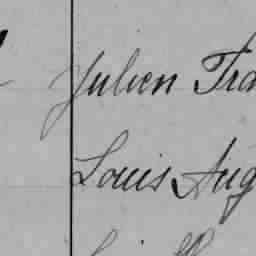 Julien Fra
Louis Aug